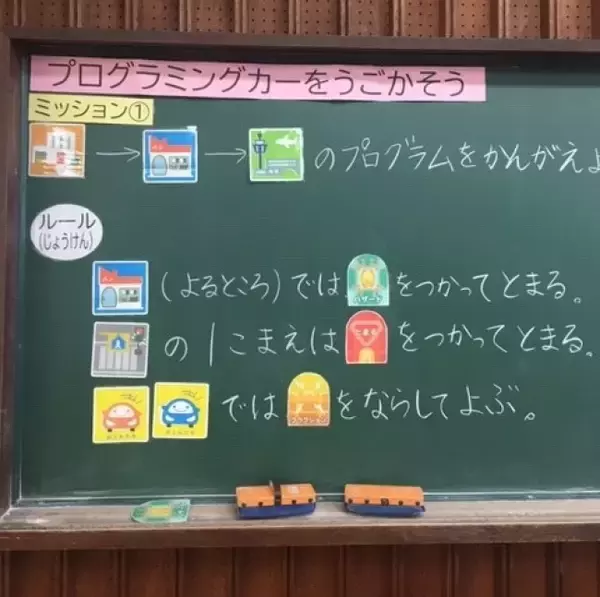 プログラミングカーをうごかそう
ミッション①
→ → のプログラムをかんがえよ
ルール
(じょうけん)
(よるところ)では ハザード をつかってとまる。
の1こまえは とまる をつかってとまる。
では をならしてよぶ。